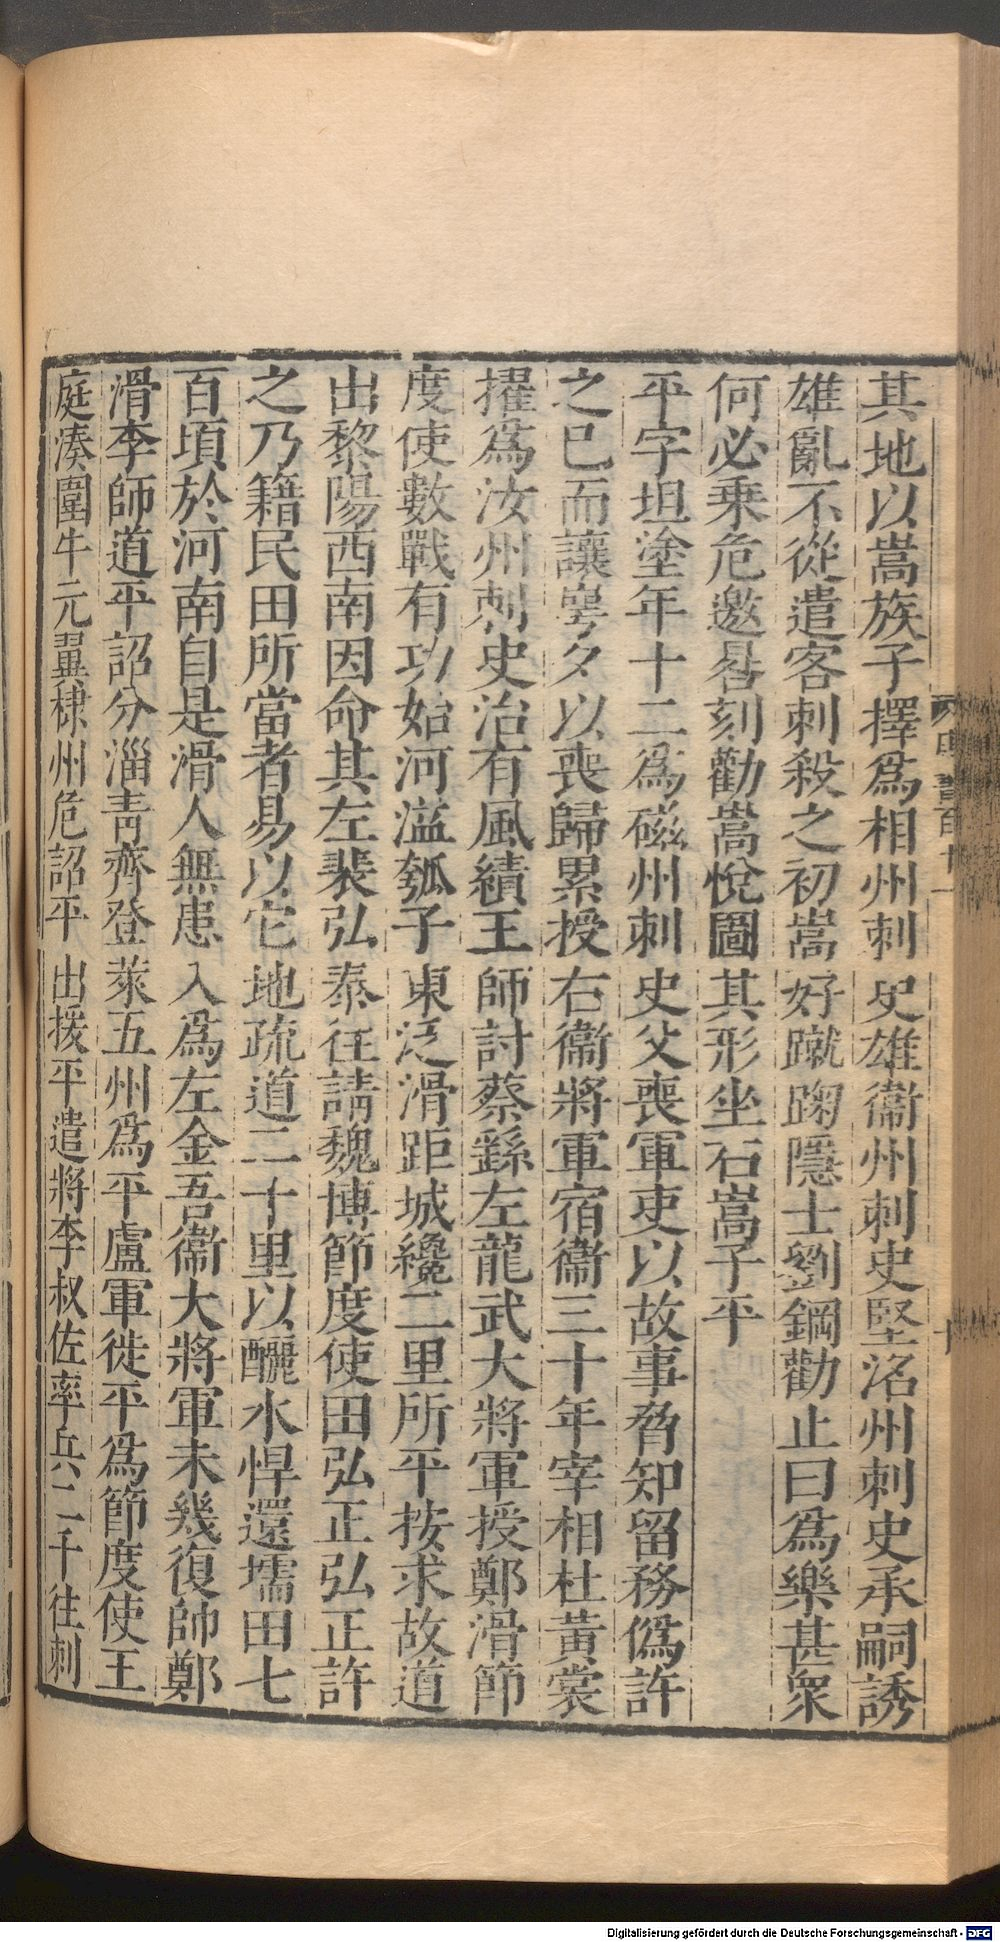 其地以嵩族子擇爲相州刺史雄衞州刺史堅洺州刺史承嗣誘
雄亂不從遣客刺殺之初嵩好蹴踘隱士劉鋼勸止曰爲樂甚衆
何必乗危邀晷刻勸嵩悅圖其形坐右嵩子平
平字坦塗年十二爲磁州刺史父喪軍吏以故事脅知留務僞許
之已而讓㟧夕以喪歸累授右衞將軍宿衞三十年宰相杜黃裳
擢爲汝州刺史治有風績王師討蔡繇左龍武大將軍授鄭滑節
度使數戰有功始河溢瓠子東泛滑距城纔二里所平按求故道
出黎陽西南因命其左裴弘泰往請魏博節度使田弘正弘正許
之乃籍民田所當者易以它地疏道二十里以釃水悍還壖田七
百頃於河南自是滑人無患入爲左金吾衞大將軍未幾復帥鄭
滑李師道平詔分淄靑齊登萊五州爲平盧軍徙平爲節度使王
庭湊圍牛元翼棣州危詔平出援平遣將李叔佐率兵二千往刺
Digitalisierung gefördert durch die Deutsche Forschungsgemeinschaft - DFG